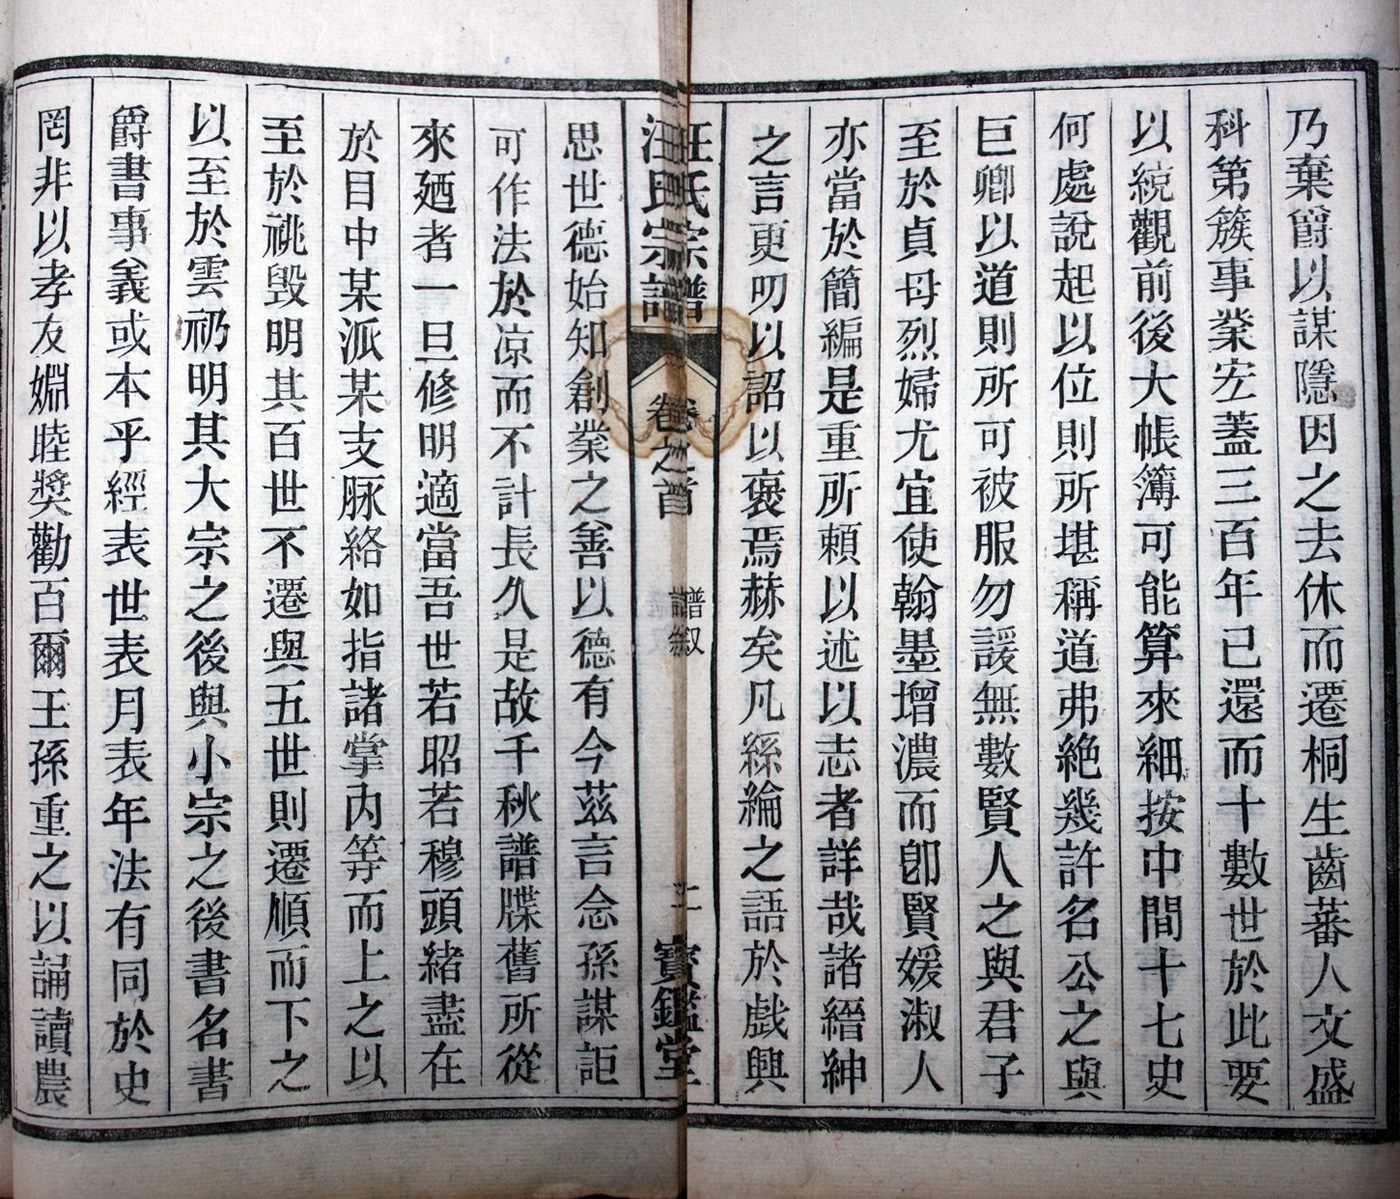 乃棄爵以謀隱因之去休而遷桐生齒蕃人文盛
科第簇事業宏蓋三百年已還而十數世於此要
以統觀前後大帳簿可能算來細按中間十七史
何處說起以位則所堪稱道弗絶幾許名公之與
巨卿以道則所可被服勿諼無數賢人之與君子
至於貞母烈婦尤宜使翰墨增濃而卽賢媛淑人
亦當於簡編是重所賴以述以志者詳哉諸縉紳
之言更叨以詔以褒焉赫矣凡絲綸之語於戲興
汪氏宗譜 卷之首 譜叙 二 寶鑑堂
思世德始知創業之善以德有今茲言念孫謀詎
可作法於凉而不計長久是故千秋譜牒舊所從
來廼者一旦修明適當吾世若昭若穆頭緒盡在
於目中某派某支脉絡如指諸掌內等而上之以
至於祧毁明其百世不遷與五世則遷順而下之
以至於雲礽明其大宗之後與小宗之後書名書
爵書事義或本乎經表世表月表年法有同於史
罔非以孝友婣睦獎勸百爾王孫重之以誦讀農